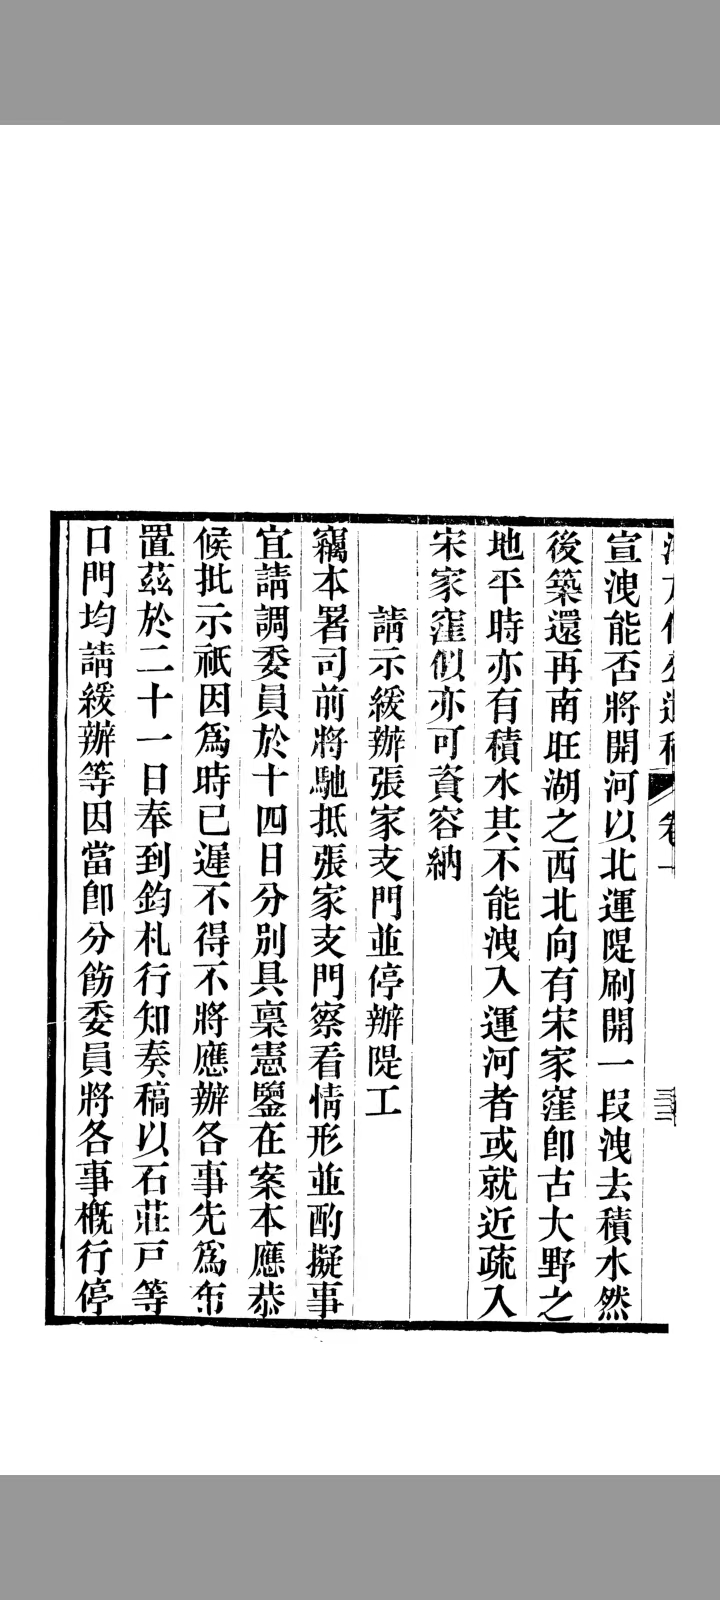 宣洩能否將開河以北運隄刷開一段洩去積水然
後築還再南旺湖之西北向有宋家窪卽古大野之
地平時亦有積水其不能洩入運河者或就近疏入
宋家窪似亦可資容納
請示緩辦張家支門並停辦隄工
竊本署司前將馳抵張家支門察看情形並酌擬事
宜請調委員於十四日分別具稟憲鑒在案本應恭
候批示祇因爲時已遲不得不將應辦各事先爲布
置茲於二十一日奉到鈞札行知奏稿以石莊戸等
口門均請緩辦等因當卽分飭委員將各事槪行停